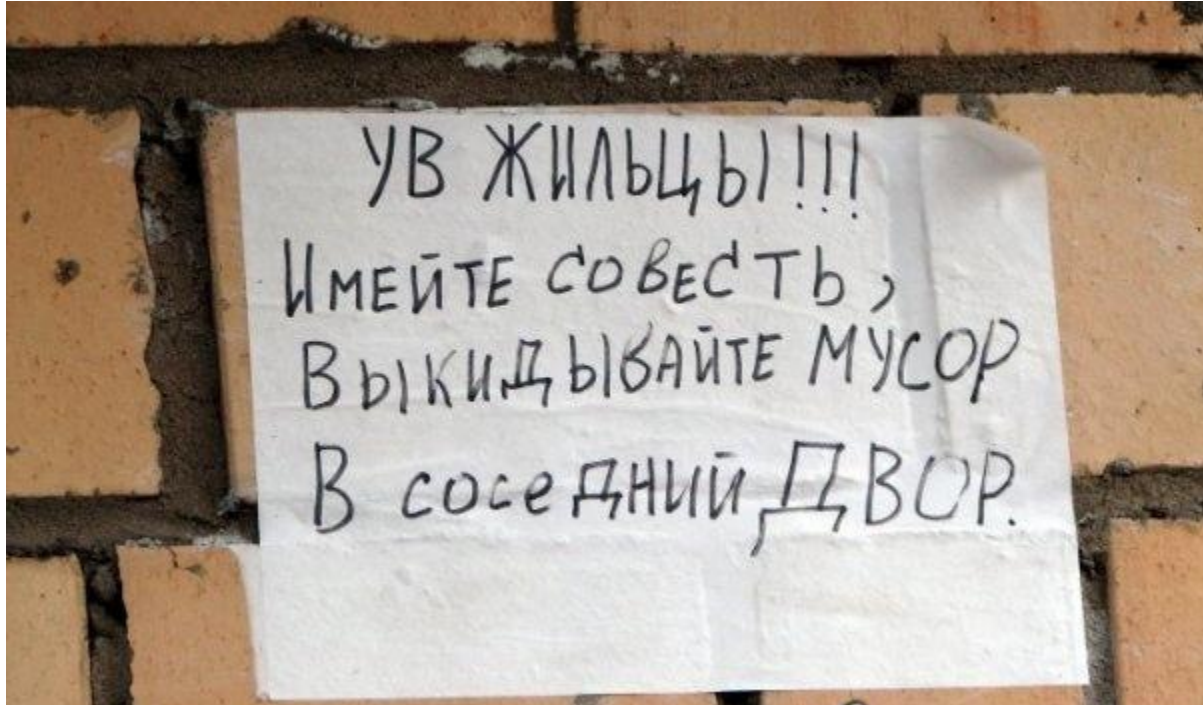 УВ ЖИЛЬЦЫ!!!
ИМЕЙТЕ СОВЕСТЬ,
ВЫКИДЫВАЙТЕ МУСОР
В соседний ДВОР.